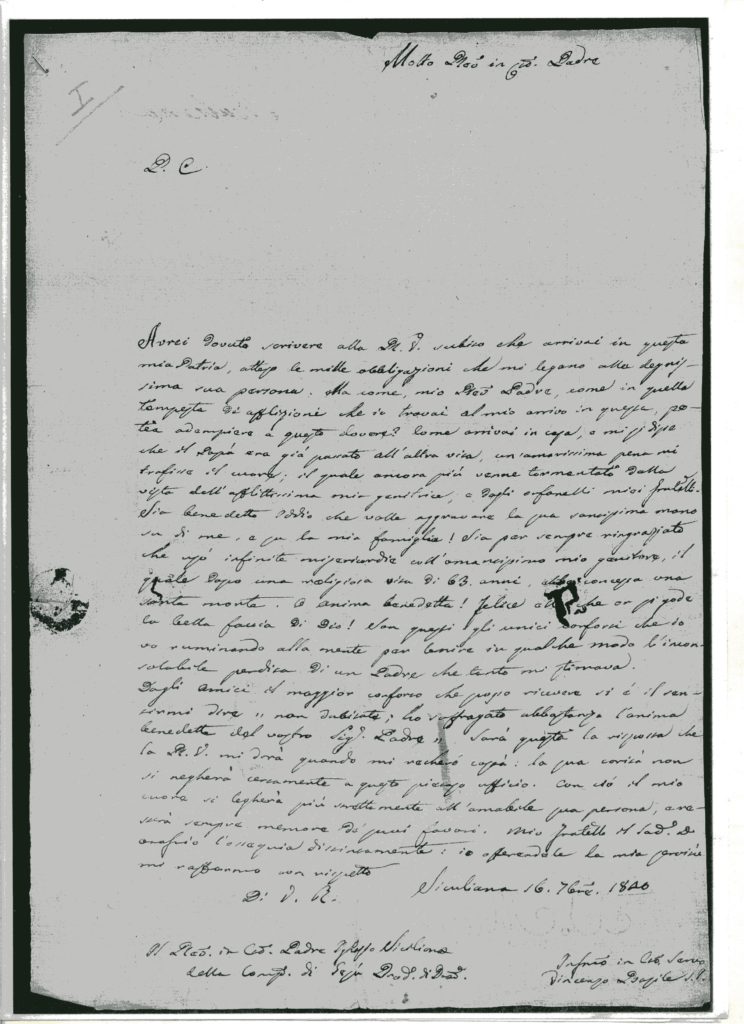 Molto Rev. in Padre
I
P. C.
Avrei dovuto scrivere alla R. V. subito che arrivai in questa
mia Patria, atteso le mille obbligazioni che mi legano alla degnis-
sima sua persona. Ma come, mio Padre, come in quella
tempesta di afflizioni che io trovai al mio arrivo in queste, po-
tea adempiere a questo dovere? Come arrivai in casa, e mi si disse
che il Papà era già passato all'altra vita, un'amarissima pena mi
trafisse il cuore; il quale ancora più venne tormentato dalla
vista dell'afflittissima mia genitrice, e dagli orfanelli miei fratelli.
Sia benedetto Iddio che volle aggravare la sua santissima mano
su di me, e su la mia famiglia! Sia per sempre ringraziato
che usò infinite misericordie coll'amantissimo mio genitore, il
quale dopo una religiosa vita di 63. anni, concessa una
santa morte. O anima benedetta! Felice che or si gode
la bella faccia di Dio! Son questi gli unici conforti che io
vo ruminando alla mente per lenire in qualche modo l'incon-
solabile perdita di un Padre che tanto mi stimava.
Dagli amici il maggior conforto che posso ricevere si è il sen-
tirmi dire „ non dubitate; ho suffragato abbastanza l'anima
benedetta del vostro Sig. Padre „ Sarà questa la risposta che
la R. V. mi darà quando mi recherò costà: la sua carità non
si negherà certamente a questo pietoso ufficio. Con ciò il mio
cuore si legherà più strettamente all'amabile sua persona, e re-
sterà sempre memore de' suoi favori. Mio fratello il
l'ossequia distintamente: io offerendole la mia servitù
mi raffermo con rispetto
Di V. R. Siculiana 16. 7bre. 1840
Il in Padre Siciliano
della Comp. di Gesù
in Servo
Vincenzo Basile